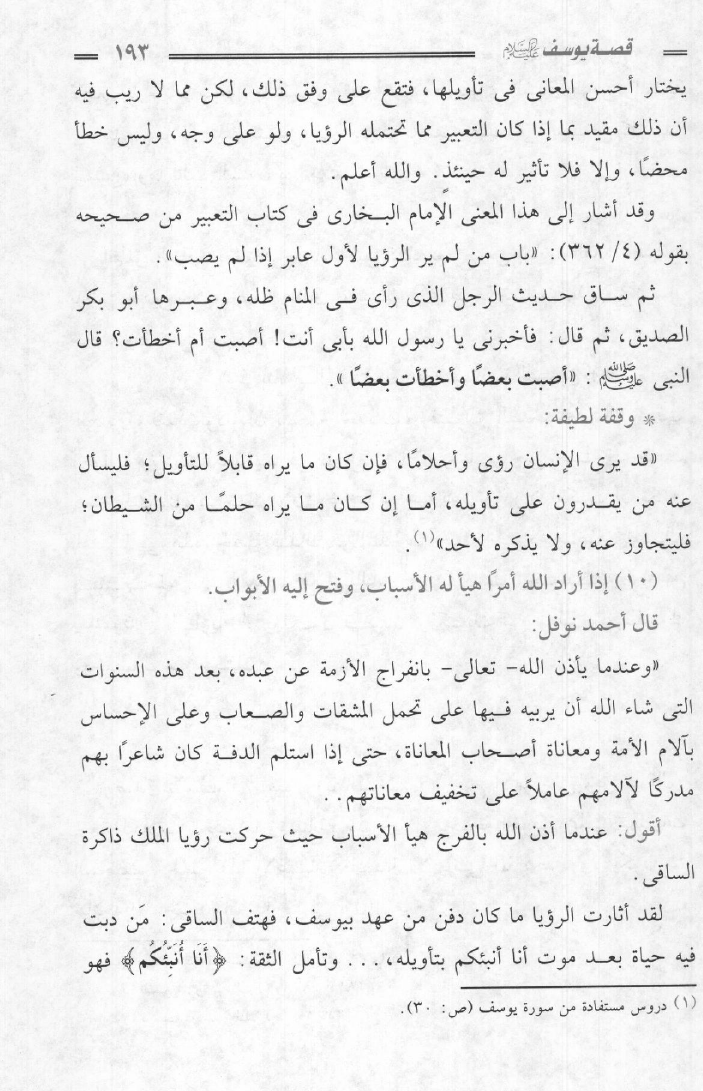 قصة يوسف عليه السلام ١٩٣
يختار أحسن المعانى فى تأويلها، فتقع على وفق ذلك، لكن مما لا ريب فيه
أن ذلك مقيد بما إذا كان التعبير مما تحتمله الرؤيا، ولو على وجه، وليس خطأ
محضًا، وإلا فلا تأثير له حينئذٍ. والله أعلم.
وقد أشار إلى هذا المعنى الإمام البخارى فى كتاب التعبير من صحيحه
بقوله (٤/ ٣٦٢): «باب من لم ير الرؤيا لأول عابر إذا لم يصب».
ثم ساق حديث الرجل الذى رأى فى المنام ظله، وعبرها أبو بكر
الصديق، ثم قال: فأخبرنى يا رسول الله بأبى أنت! أصبت أم أخطأت؟ قال
النبى ﷺ: «أصبت بعضًا وأخطأت بعضًا».
* وقفة لطيفة:
«قد يرى الإنسان رؤى وأحلامًا، فإن كان ما يراه قابلاً للتأويل؛ فليسأل
عنه من يقدرون على تأويله، أما إن كان ما يراه حلمًا من الشيطان؛
فليتجاوز عنه، ولا يذكره لأحد»(١).
(١٠) إذا أراد الله أمرًا هيأ له الأسباب، وفتح إليه الأبواب.
قال أحمد نوفل:
«وعندما يأذن الله- تعالى- بانفراج الأزمة عن عبده، بعد هذه السنوات
التى شاء الله أن يربيه فيها على تحمل المشقات والصعاب وعلى الإحساس
بآلام الأمة ومعاناة أصحاب المعاناة، حتى إذا استلم الدفة كان شاعرًا بهم
مدركًا لآلامهم عاملاً على تخفيف معاناتهم..
أقول: عندما أذن الله بالفرج هيأ الأسباب حيث حركت رؤيا الملك ذاكرة
الساقى.
لقد أثارت الرؤيا ما كان دفن من عهد بيوسف، فهتف الساقى: مَن دبت
فيه حياة بعد موت أنا أنبئكم بتأويله، ... وتأمل الثقة: ﴿أَنَا أُنَبِّئُكُم﴾ فهو
(١) دروس مستفادة من سورة يوسف (ص: ٣٠).